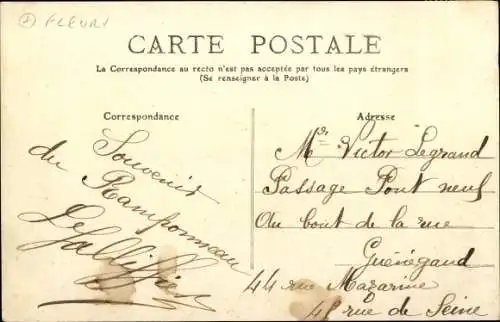 FLEURI
CARTE POSTALE
La Correspondance au recto n'est pas acceptée par tous les pays étrangers
(Se renseigner à la Poste)
Correspondance
Souvenir
du Ramponneau
Adresse
Mr Victor Legrand
Passage Pont neuf
Au bout de la rue
Guénégaud
44 rue Mazarine
rue de Seine